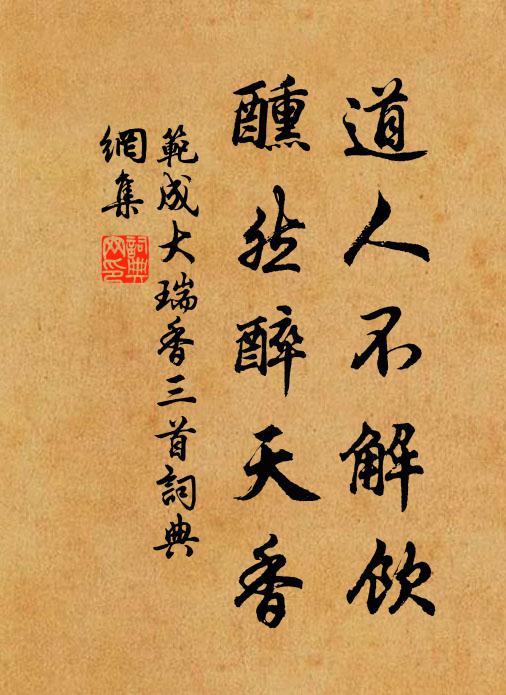 道人不解飲
醺然醉天香
範成大瑞香三首詞典
網集
詞典網印